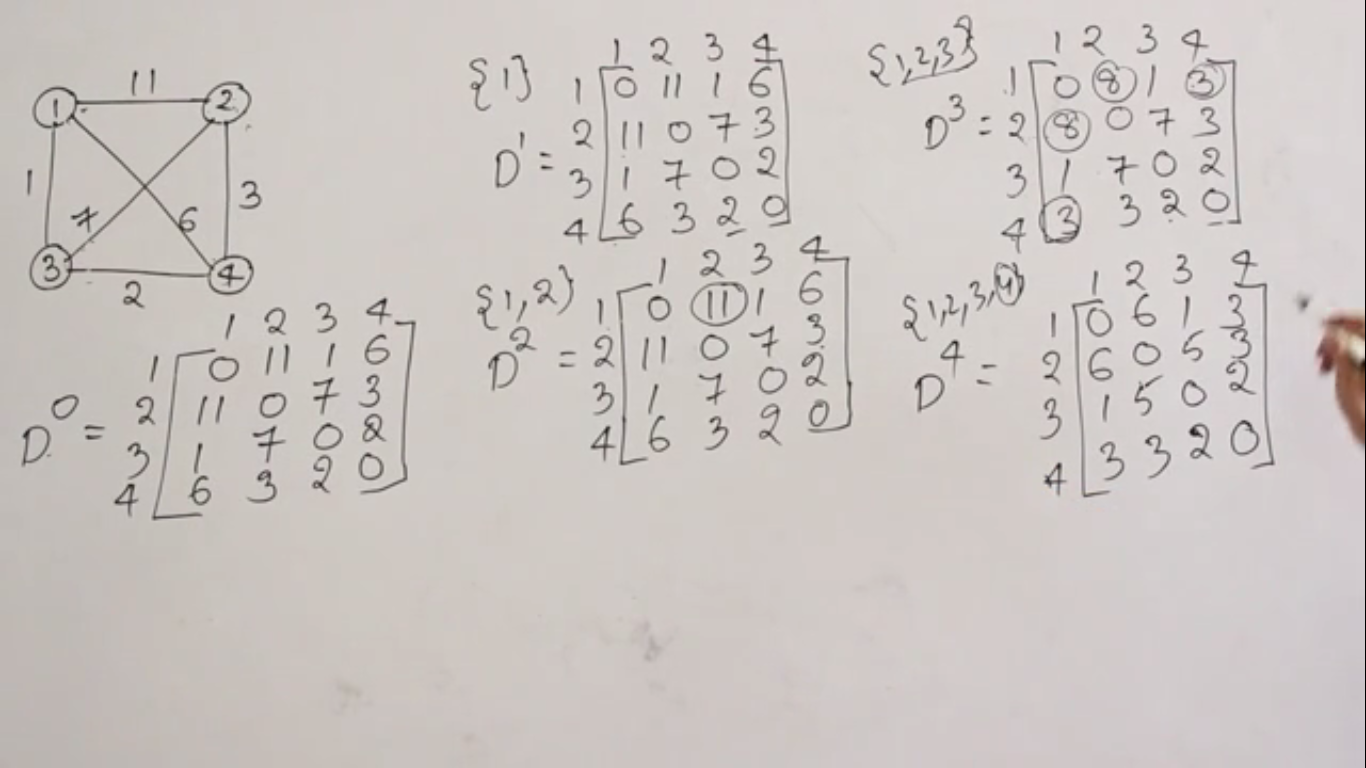 11
1 2
1 3
7 6
3 4
2
1 2 3 4
1 0 11 1 6
D⁰ = 2 11 0 7 3
3 1 7 0 2
4 6 3 2 0
{1} 1 2 3 4
1 0 11 1 6
D¹ = 2 11 0 7 3
3 1 7 0 2
4 6 3 2 0
{1,2} 1 2 3 4
1 0 11 1 6
D² = 2 11 0 7 3
3 1 7 0 2
4 6 3 2 0
{1,2,3} 1 2 3 4
1 0 8 1 3
D³ = 2 8 0 7 3
3 1 7 0 2
4 3 3 2 0
{1,2,3,4} 1 2 3 4
1 0 6 1 3
D⁴ = 2 6 0 5 3
3 1 5 0 2
4 3 3 2 0